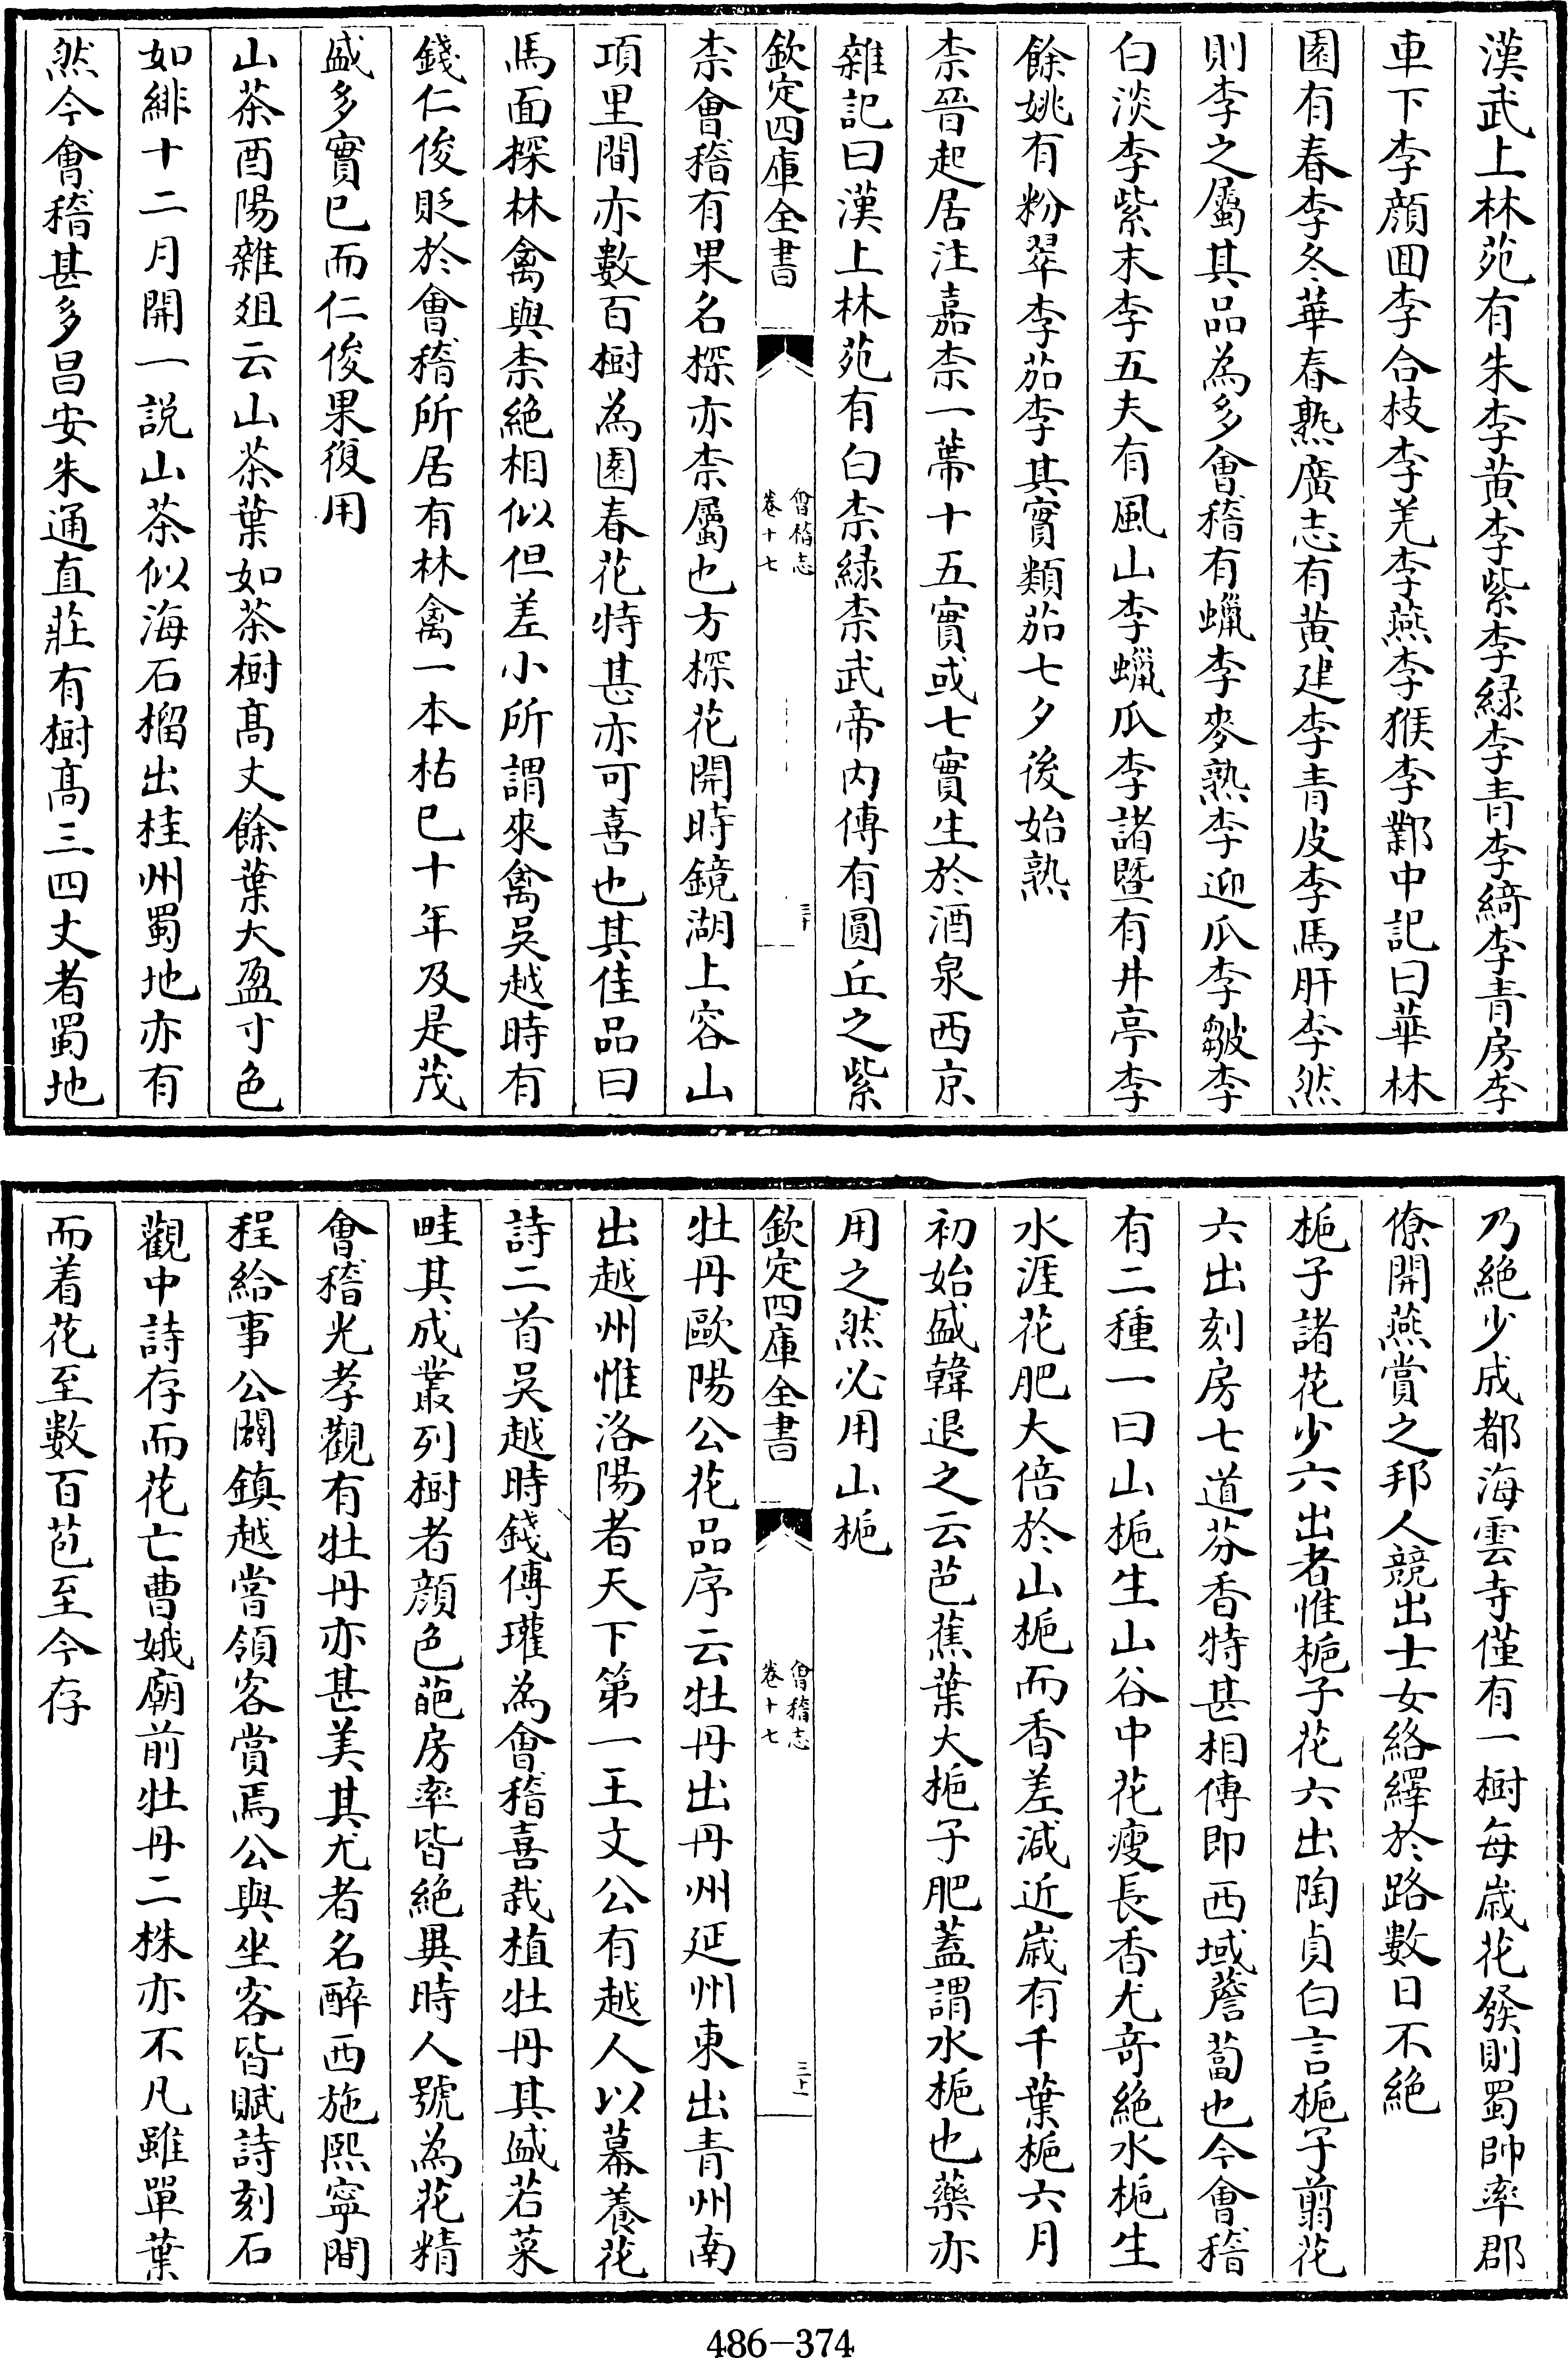 漢武上林苑有朱李黄李紫李緑李青李綺李青房李
車下李顔囬李合枝李羌李燕李猴李鄴中記曰華林
園有春李冬華春熟廣志有黄建李青皮李馬肝李然
則李之屬其品為多會稽有蠟李麥熟李迎瓜李皺李
白淡李紫末李五夫有風山李蠟瓜李諸暨有井亭李
餘姚有粉翠李茄李其實類茄七夕後始熟
柰晉起居注嘉柰一蔕十五實或七實生於酒泉西京
雜記曰漢上林苑有白柰緑柰武帝内傳有圓丘之紫
欽定四庫全書
會稽志
卷十七
三十
柰會稽有果名㮈亦柰屬也方㮈花開時鏡湖上容山
項里間亦數百樹為園春花特甚亦可喜也其佳品曰
馬面㮈林禽與柰絶相似但差小所謂來禽吳越時有
錢仁俊貶於會稽所居有林禽一本枯已十年及是茂
盛多實已而仁俊果復用
山茶酉陽雜俎云山茶葉如茶樹髙丈餘葉大盈寸色
如緋十二月開一説山茶似海石榴出桂州蜀地亦有
然今會稽甚多昌安朱通直莊有樹髙三四丈者蜀地
乃絶少成都海雲寺僅有一樹每歳花發則蜀帥率郡
僚開燕賞之邦人競出士女絡繹於路數日不絶
梔子諸花少六出者惟梔子花六出陶貞白言梔子翦花
六出刻房七道芬香特甚相傳即西域薝蔔也今會稽
有二種一曰山梔生山谷中花瘦長香尤竒絶水梔生
水涯花肥大倍於山梔而香差減近嵗有千葉梔六月
初始盛韓退之云芭蕉葉大梔子肥蓋謂水梔也藥亦
用之然必用山梔
欽定四庫全書
會稽志
卷十七
三十一
牡丹歐陽公花品序云牡丹出丹州延州東出青州南
出越州惟洛陽者天下第一王文公有越人以幕養花
詩二首吳越時錢傳瓘為會稽喜栽植牡丹其盛若菜
畦其成叢列樹者顔色葩房率皆絶異時人號為花精
會稽光孝觀有牡丹亦甚美其尤者名醉西施熙寧間
程給事公闢鎮越嘗領客賞焉公與坐客皆賦詩刻石
觀中詩存而花亡曹娥廟前牡丹二株亦不凡雖單葉
而着花至數百苞至今存
486-374